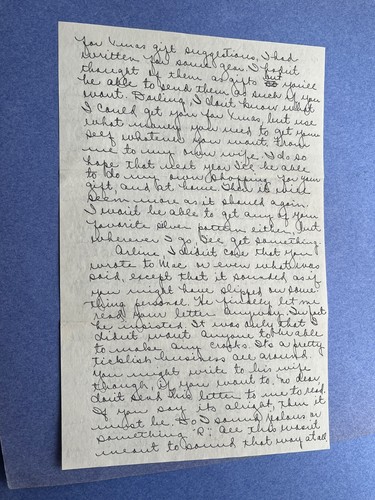 for Xmas gift suggestions, I had
written you some years. I hadn't
thought of them as gifts but you'll
be able to send them as such if you
want. Darling, I don't know what
I could get you for Xmas, but use
what money you need to get your
self whatever you want. From
me to my own wife. I do so
hope that next year I'll be able
to do my own shopping for your
gift, and at home. Then it will
seem more as it should again.
I won't be able to get any of your
favorite silver pattern either, but
wherever I go, I'll get something.
Arline, I didn't care that you
wrote to Mac or even what was
said, except that it sounded as if
you might have slipped on some
thing personal. He finally let me
read your letter anyway. In fact
he insisted. It was only that I
didn't want anyone to be able
to make any cracks. It's a pretty
ticklish business all around.
You might write to his wife
though, if you want to. No dear,
don't send his letter to me to read.
If you say its alright, then it
must be. Do I sound jealous or
something "R"? All this wasn't
meant to sound that way at all